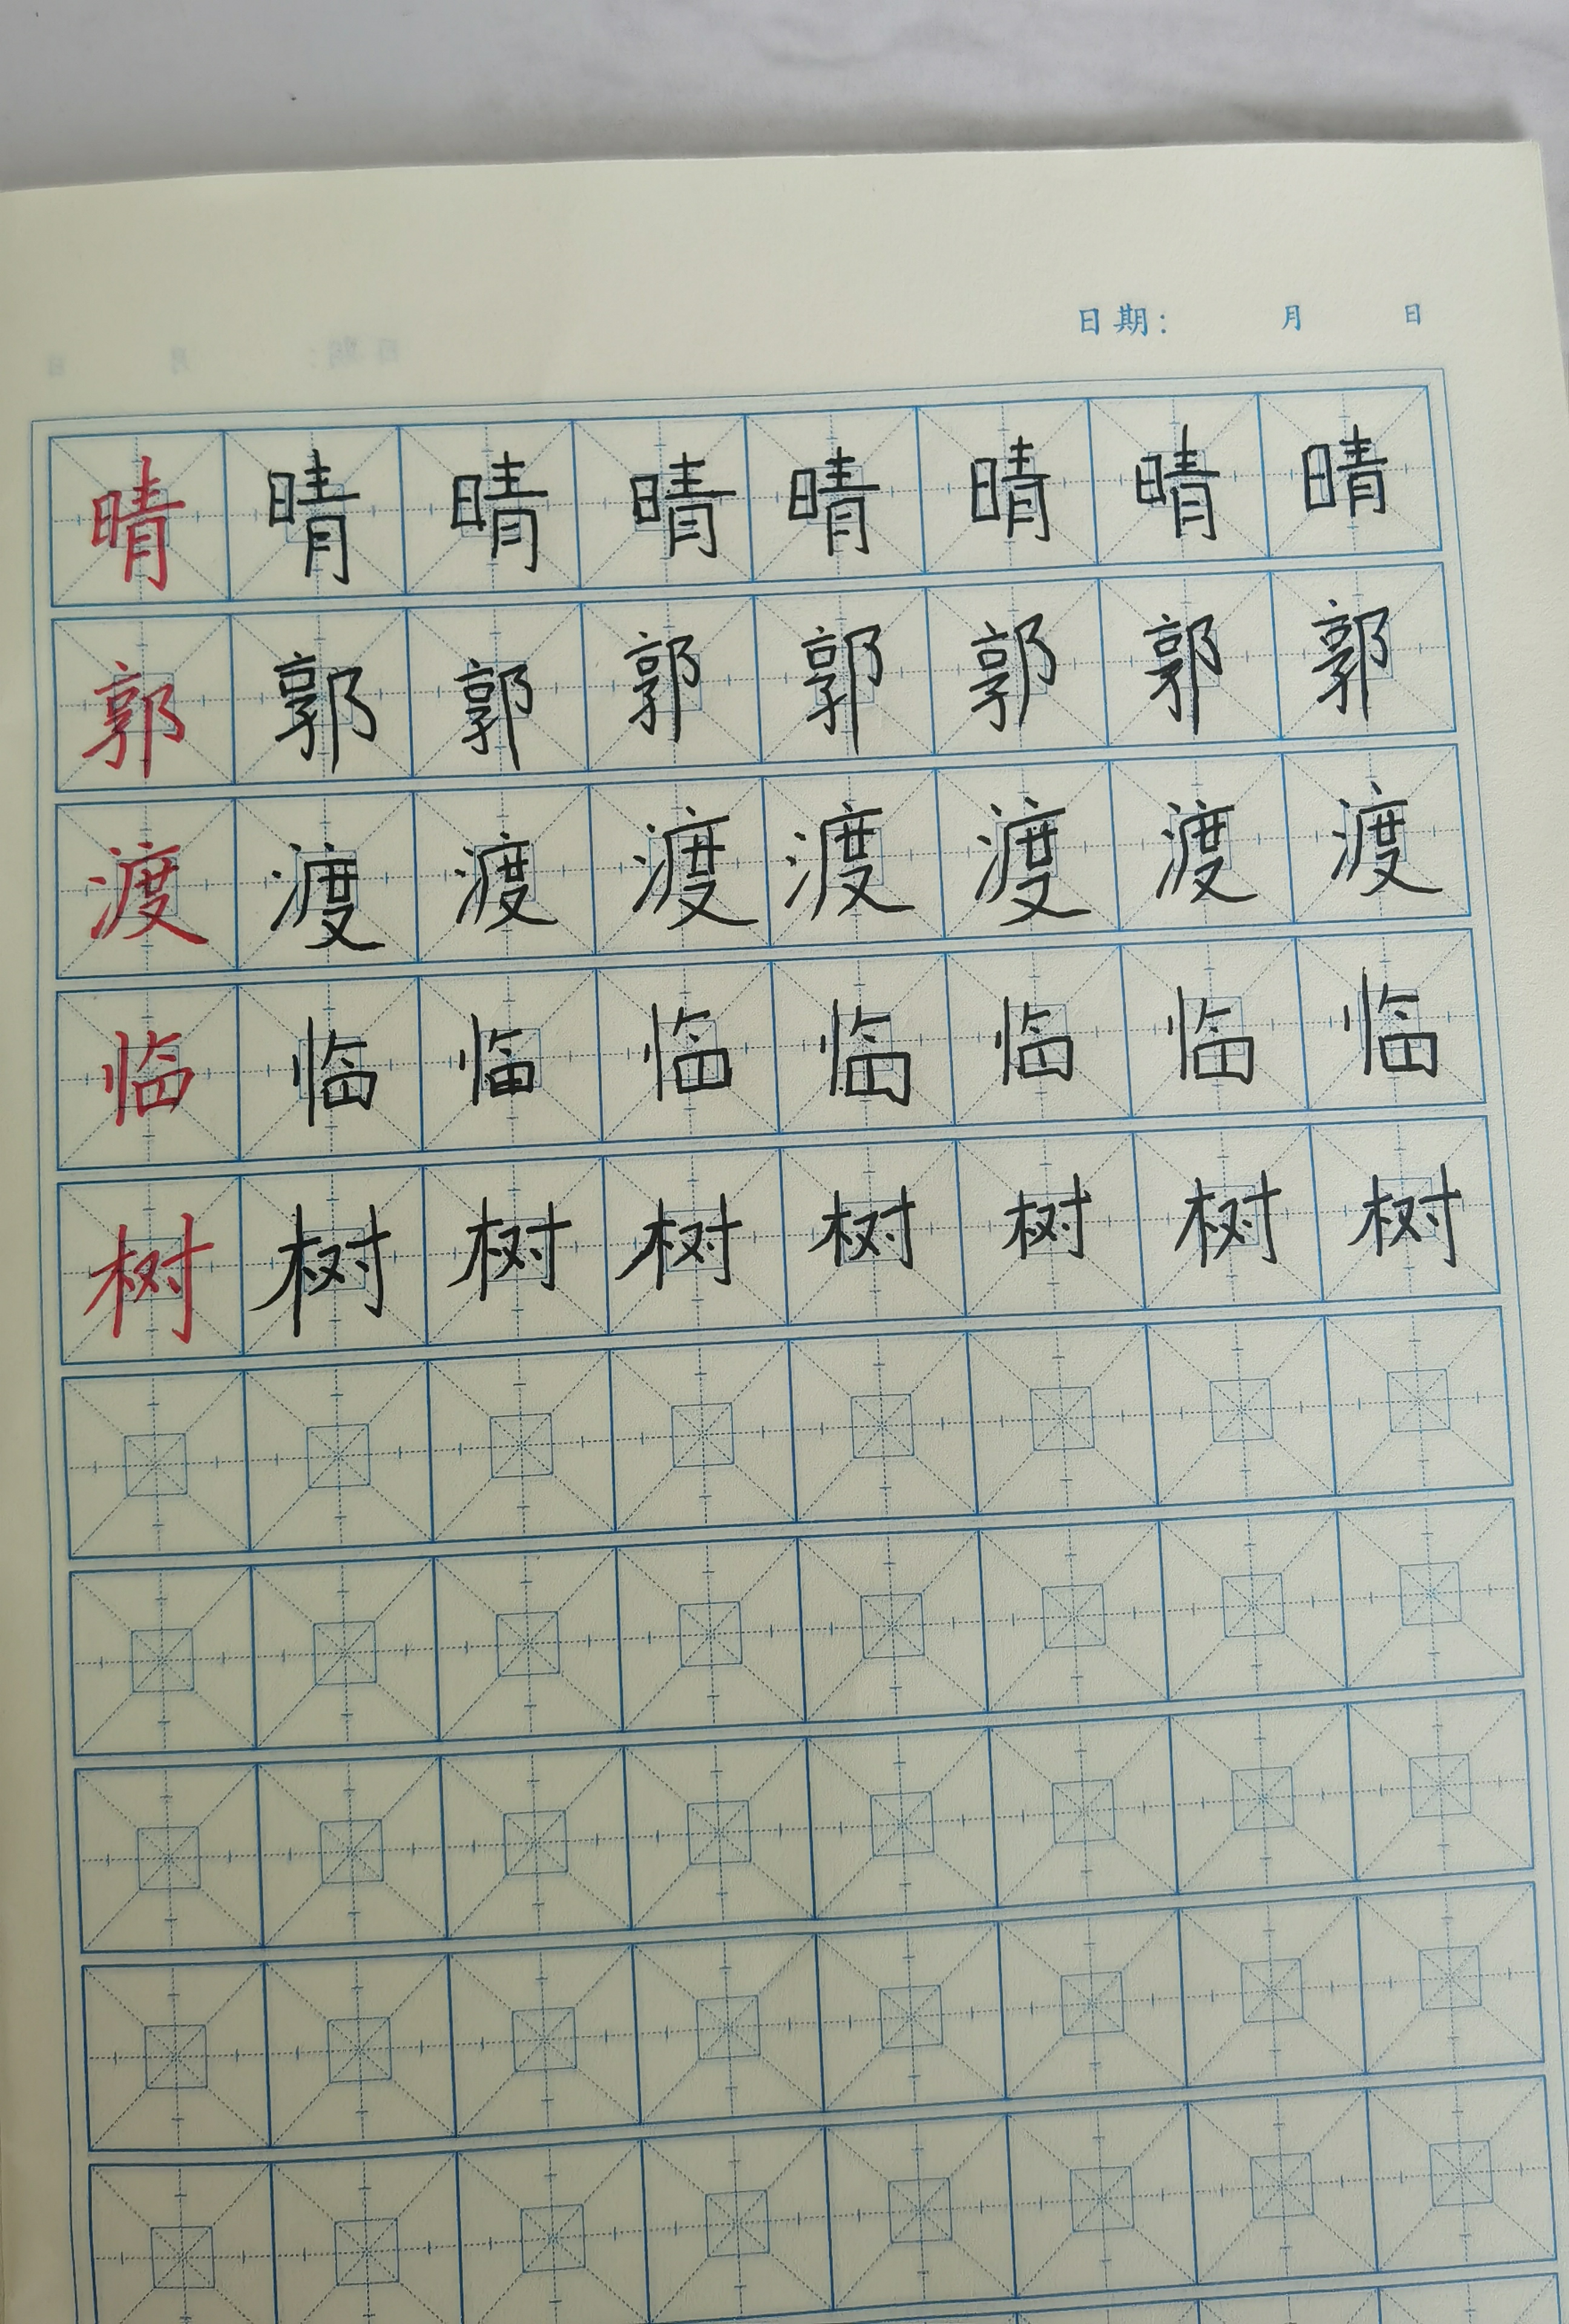 日期： 月 日
晴 晴 晴 晴 晴 晴 晴 晴
郭 郭 郭 郭 郭 郭 郭 郭
渡 渡 渡 渡 渡 渡 渡 渡
临 临 临 临 临 临 临 临
树 树 树 树 树 树 树 树